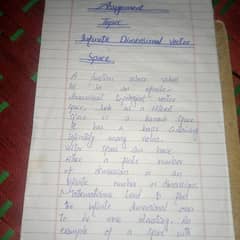 Assignment
Topic
Infinite Dimensional Vector
Space.
A function whose values
lie in an infinite-
dimensional topological vector
space, such as a Hilbert
space or a Banach space
It has a basis containing
infinitely many vectors.
Vector space can have
either a finite number
of dimensions or an
infinite number of dimensions.
Mathematicians tend to find
the infinite dimensional ones
to be more interesting. An
example of a space with